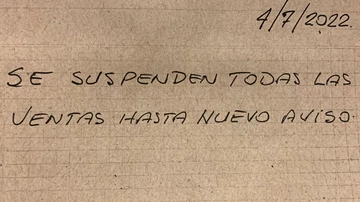 4/7/2022.
SE SUSPENDEN TODAS LAS
VENTAS HASTA NUEVO AVISO.